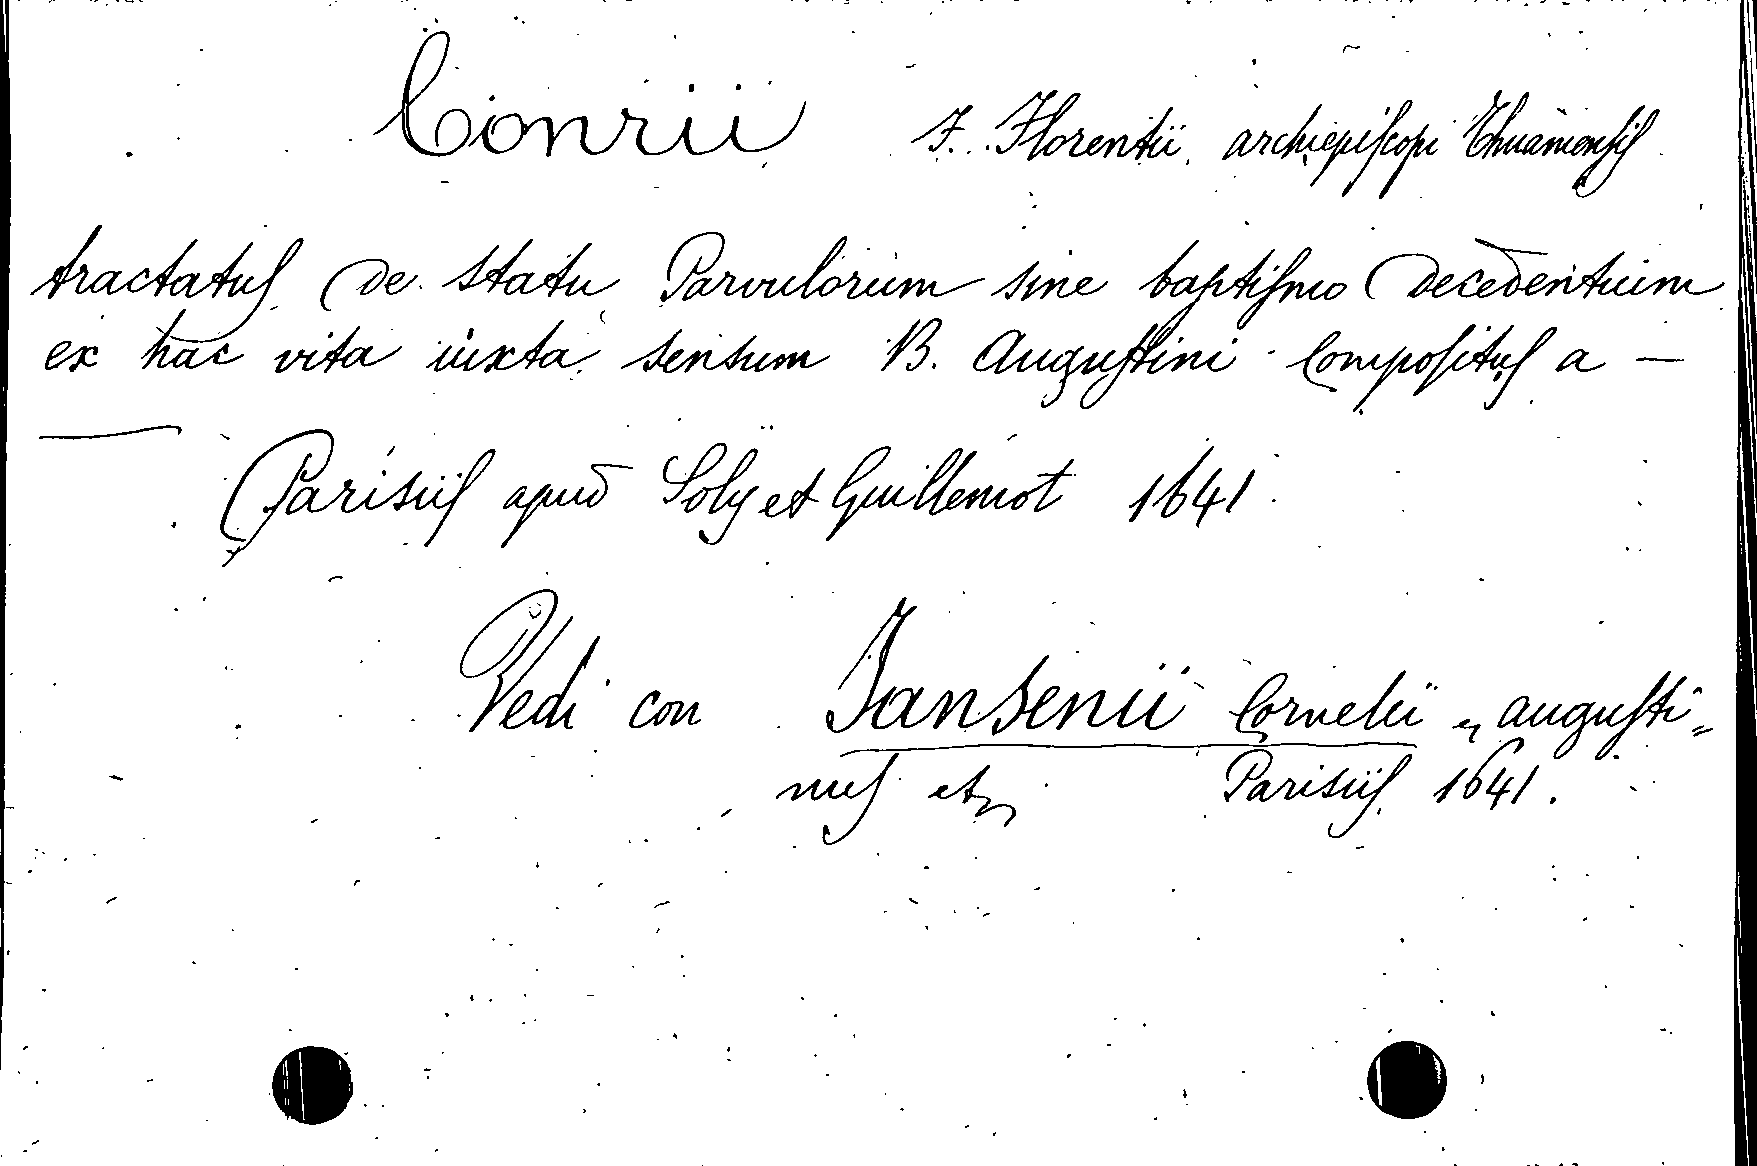 Conrii F. Florentii archiepiscopi Thuamensis
tractatus de statu Parvulorum sine baptismo decedentium
ex hac vita iuxta sensum B. Augustini Compositus a —
—
Parisiis apud Soly et Guillemot 1641
Vedi con Jansenii Cornelii „ augusti=
nus etc. Parisiis 1641.